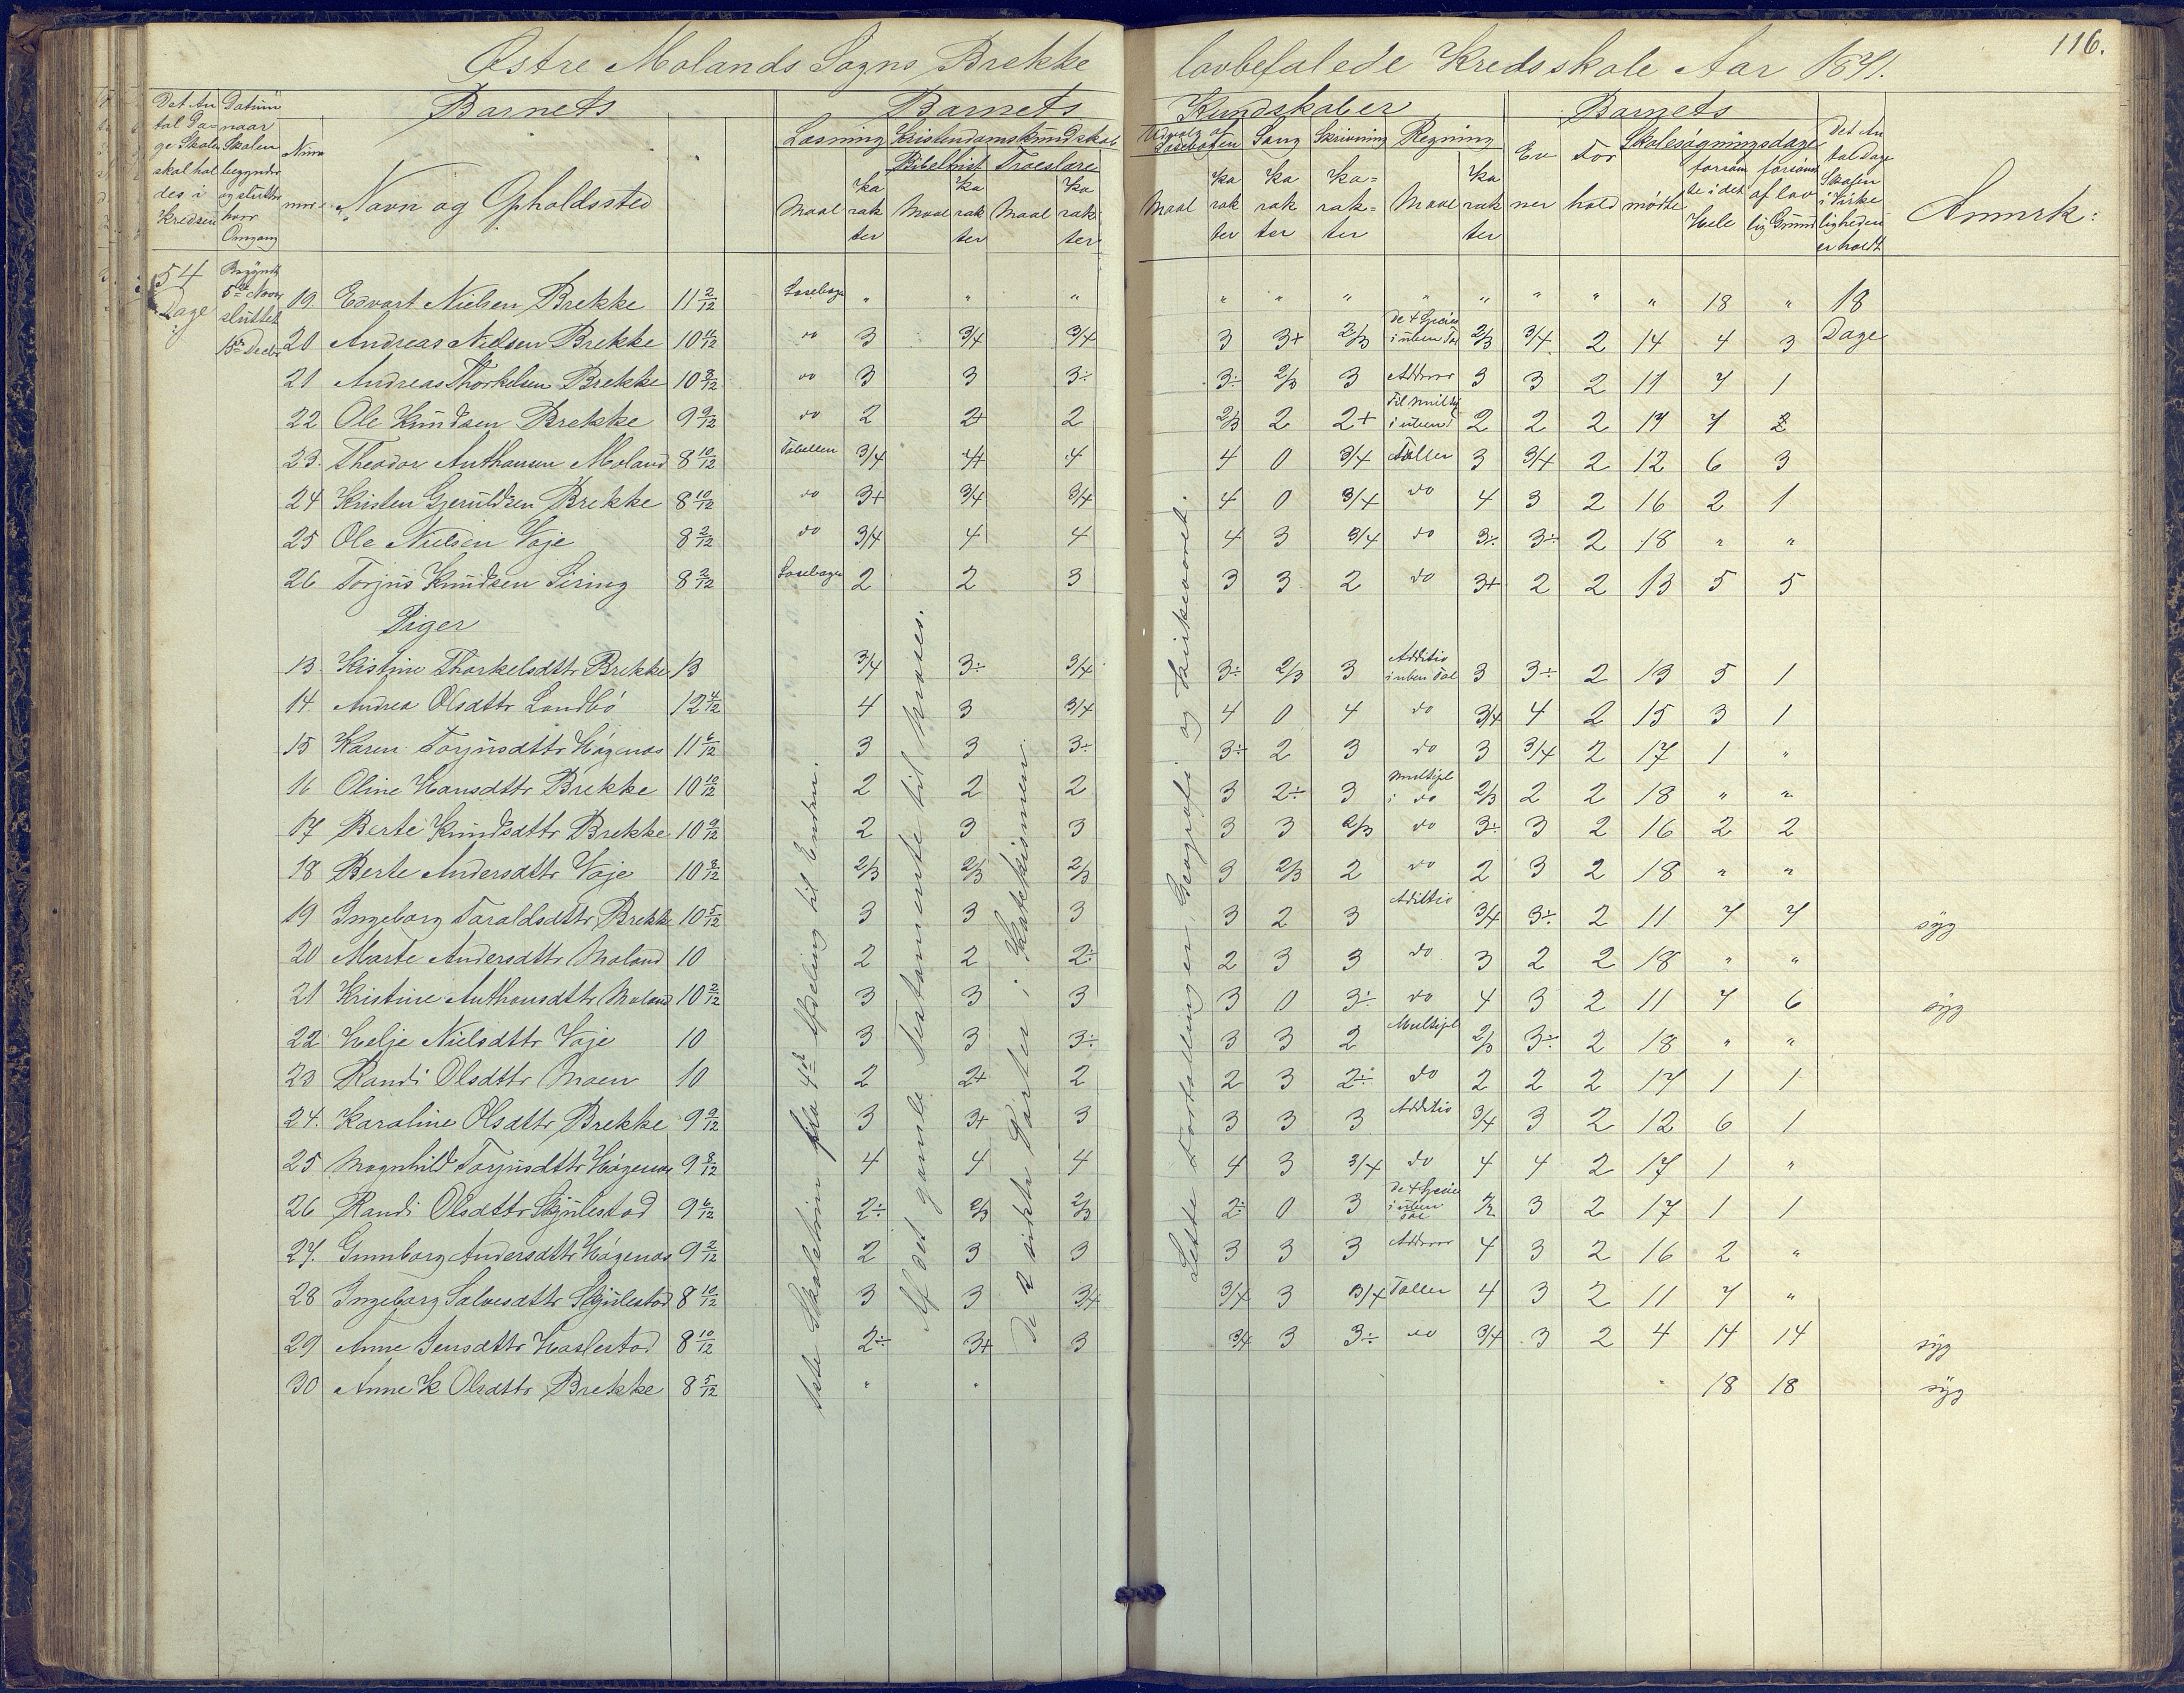 116.
Østre Molands Sogns Brekke lovbefalede Kredsskole Aar 1871.
Det An tal Da= ge Skolen skal hol des i Kredsen
Datum naar Skolen begynder og sluttes hver Omgang
Num mer
Barnets
Navn og Opholdssted
Barnets Kundskaber
Læsning Kristendomskundskab
Bibelhist Troeslære
Udvalg af Læsebogen Sang Skrivning Regning
Maal Ka rak ter Maal Ka rak ter Maal Ka rak ter
Maal Ka rak ter Ka rak ter Ka= rak= ter Maal Ka rak ter
Barnets
Ev ner For hold
Skolesøgningsdage
mødte forsøm te i det Hele forsømt af lov lig Grund
Det An tal Dage Skolen i Virke ligheden er holdt
Anmrk:
54 Dage
Begyndt 5te Novbr sluttet Decbr
19. Edvart Nielsen Brekke 11 2/12 Læsebogen " " " " " " " " " " " 18 " 18 Dage
20 Andreas Nielsen Brekke 10 11/12 do 3 3/4 3/4 3 3+ 2/3 de 4 Specier i uben Tal 2/3 3/4 2 14 4 3
21 Andreas Thorkelsen Brekke 10 8/12 do 3 3 3÷ 3÷ 2/3 3 Adderer 3 3 2 11 7 1
22 Ole Knudsen Brekke 9 9/12 do 2 2+ 2 2/3 2 2+ Til Multip i uben 2 2 2 11 7 2
23. Theodor Anthonsen Moland 8 10/12 Tabellen 3/4 4+ 4 4 0 3/4 Tæller 3 3/4 2 12 6 3
24 Kristen Gjeruldsen Brekke 8 10/12 do 3+ 3/4 3/4 4 0 3/4 do 4 3 2 16 2 1
25 Ole Nielsen Voje 8 2/12 do 3/4 4 4 4 3 3/4 do 3÷ 3÷ 2 18 " "
26 Torjus Knudsen Siring 8 2/12 Læsebogen 2 2 3 3 3 2 do 3+ 2 2 13 5 5
Piger
13. Kistine Thorkelsdttr Brekke 13 3/4 3÷ 3/4 3÷ 2/3 3 Additio i uben Tal 3 3÷ 2 13 5 1
14. Andrea Olsdttr Londbö 12 4/12 4 3 3/4 4 0 4 do 3/4 4 2 15 3 1
15 Karen Torjusdttr Högenæs 11 6/12 3 3 3÷ 3÷ 2 3 do 3 3/4 2 17 1 "
16 Oline Hansdttr Brekke 10 10/12 2 2 2 3 2÷ 3 Multipl i do 2/3 2 2 18 " "
17 Berte Knudsdttr Brekke 10 9/12 2 3 3 3 3 2/3 do 3÷ 3 2 16 2 2
18 Berte Andersdttr Voje 10 8/12 2/3 2/3 2/3 3 2/3 2 do 2 3 2 18 " "
19 Ingeborg Taraldsdttr Brekke 10 5/12 3 3 3 3 2 3 Adittio 3/4 3÷ 2 11 7 7 syg
20 Marte Andersdttr Moland 10 2 2 2÷ 2 3 3 do 3 2 2 18 " "
21 Kristine Anthonsdttr Moland 10 2/12 3 3 3 3 0 3÷ do 4 3 2 11 7 6 syg
22 Helje Nielsdttr Voje 10 3 3 3÷ 3 3 2 Multipl 2/3 3÷ 2 18 " "
23 Randi Olsdttr Moen 10 2 2+ 2 2 3 2÷ do 2 2 2 17 1 1
24. Karoline Olsdttr Brekke 9 9/12 3 3+ 3 3 3 3 Additio 3/4 3 2 12 6 1
25 Magnhild Torjusdttr Högenæs 9 8/12 4 4 4 4 3 3/4 do 4 4 2 17 1 "
26 Randi Olsdttr Skjulestad 9 6/12 2÷ 2/3 2/3 2÷ 0 3 de 4 Specier i uben Tal 3 2 17 1 1
27. Gunnborg Andersdttr Högenæs 9 2/12 2 3 3 3 3 3 Adderer 4 3 2 16 2 "
28 Ingeborg Salvesdttr Skjulestad 8 10/12 3 3 3/4 3/4 3 3/4 Tæller 4 3 2 11 7 "
29 Anne Jensdttr Haslestad 8 10/12 2÷ 3+ 3 3/4 3 3÷ do 3/4 3 2 4 14 14 syg
30 Anne K Olsdttr Brekke 8 5/12 " " 18 18 syg
Skoletrin fra 4de Afdeling til Enden.
Af det gamle Testamente til Moses.
De 2 sidste Parter i Katekismen.
Lette Fortællinger Geografi og Kirkeaaret.